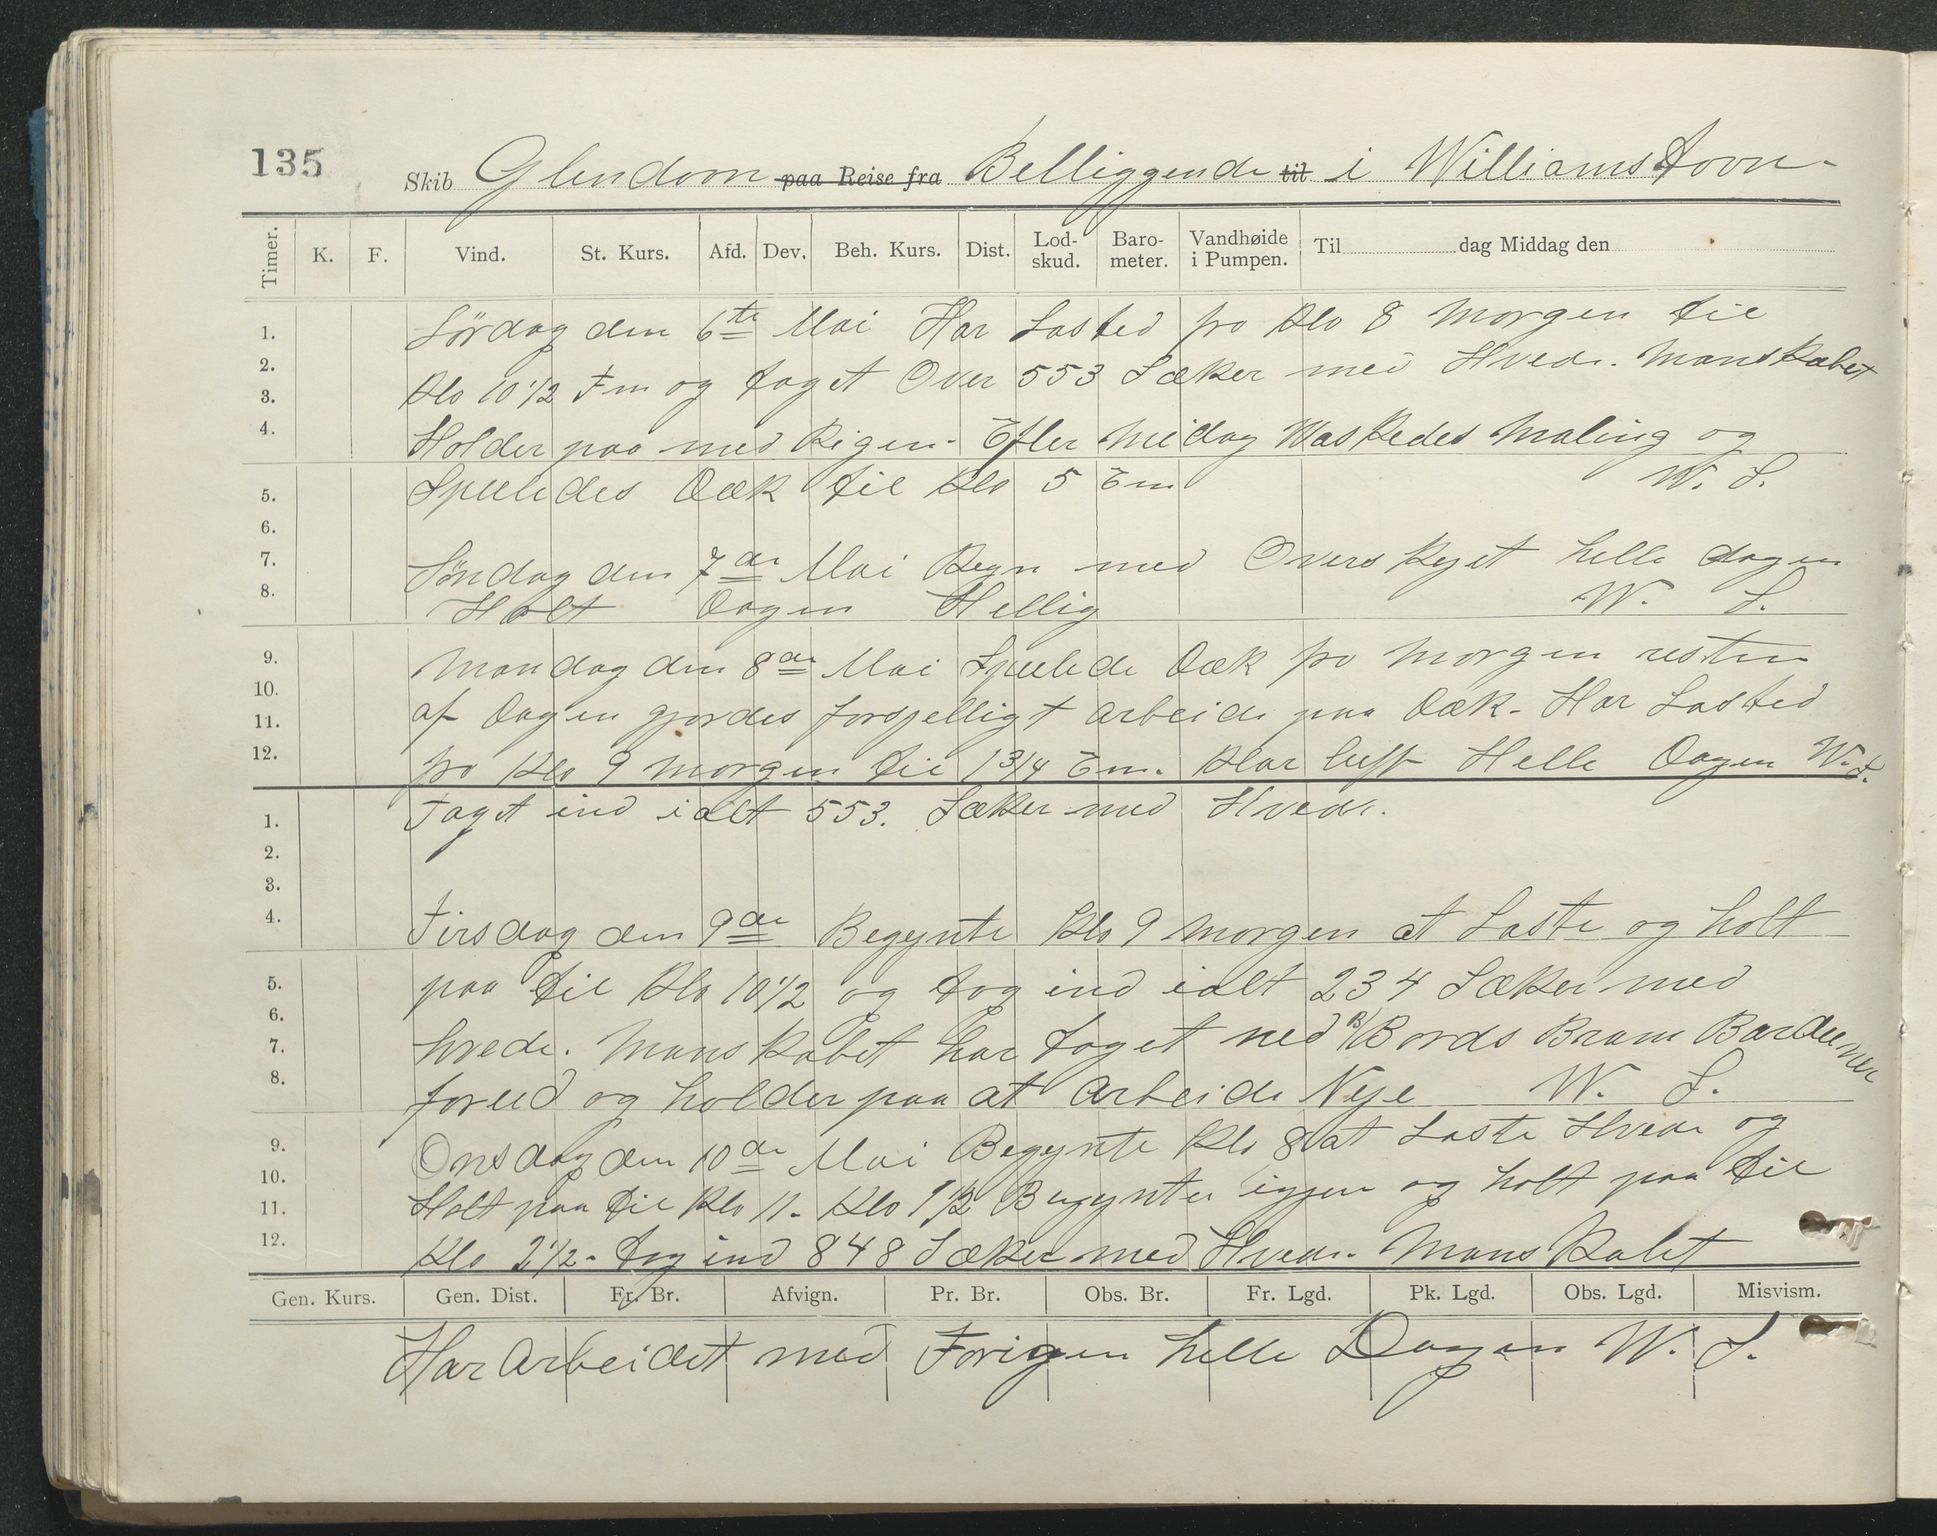 135
Skib Glendoon paa Reise fra Belliggende til i Williamstovn
Timer. K. F. Vind. St. Kurs. Afd. Dev. Beh. Kurs. Dist. Lod-skud. Baro-meter. Vandhøide i Pumpen. Til dag Middag den
1. Lørdag den 6te Mai Har Lasted fra Klo 8 Morgen til
2. Klo 10 1/2 Fm og taget Over 553 Sækker med Hvede. Manskabet
3.
4. Holder paa med Rigen. Efter Midag Waskedes Maling og
5. Spuledes Dæk til Klo 5 Em W. S.
6.
7. Søndag den 7de Mai Regn med Overskyet helle dagen
8. Holt Dagen Hellig W. S.
9. Mandag den 8de Mai Spulede Dæk fra Morgen resten
10. af Dagen gjordes forsjelligt arbeide paa Dæk. Har Lasted
11.
12. fra Klo 9 Morgen til 1 3/4 Em. Klar luft Helle Dagen W. S.
1. Taget ind i alt 553. Sækker med Hvede.
2.
3.
4. Tirsdag den 9de Begynte Klo 9 Morgen at Laste og holt
5. paa til Klo 10 1/2 og tog ind ialt 234 Sækker med
6.
7. hvede. Manskabet har taget ned B/Bords Bram Barduner
8. forud og holder paa at Arbeide Nye W. S.
9. Onsdag den 10de Mai Begynte Klo 8 at Laste Hvede og
10.
11. Holt paa til Klo 11. Klo 1 1/2 Begynte igjen og holt paa til
12. Klo 2 1/2. tog ind 848 Sækker med Hvede. Manskabet
Gen. Kurs. Gen. Dist. Fr. Br. Afvign. Pr. Br. Obs. Br. Fr. Lgd. Pk. Lgd. Obs. Lgd. Misvism.
Har Arbeidet med Forigen helle Dagen W. S.